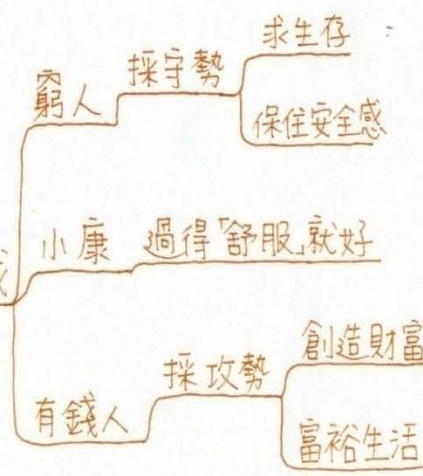 窮人
採守勢
求生存
保住安全感
小康
過得「舒服」就好
有錢人
採攻勢
創造財富
富裕生活